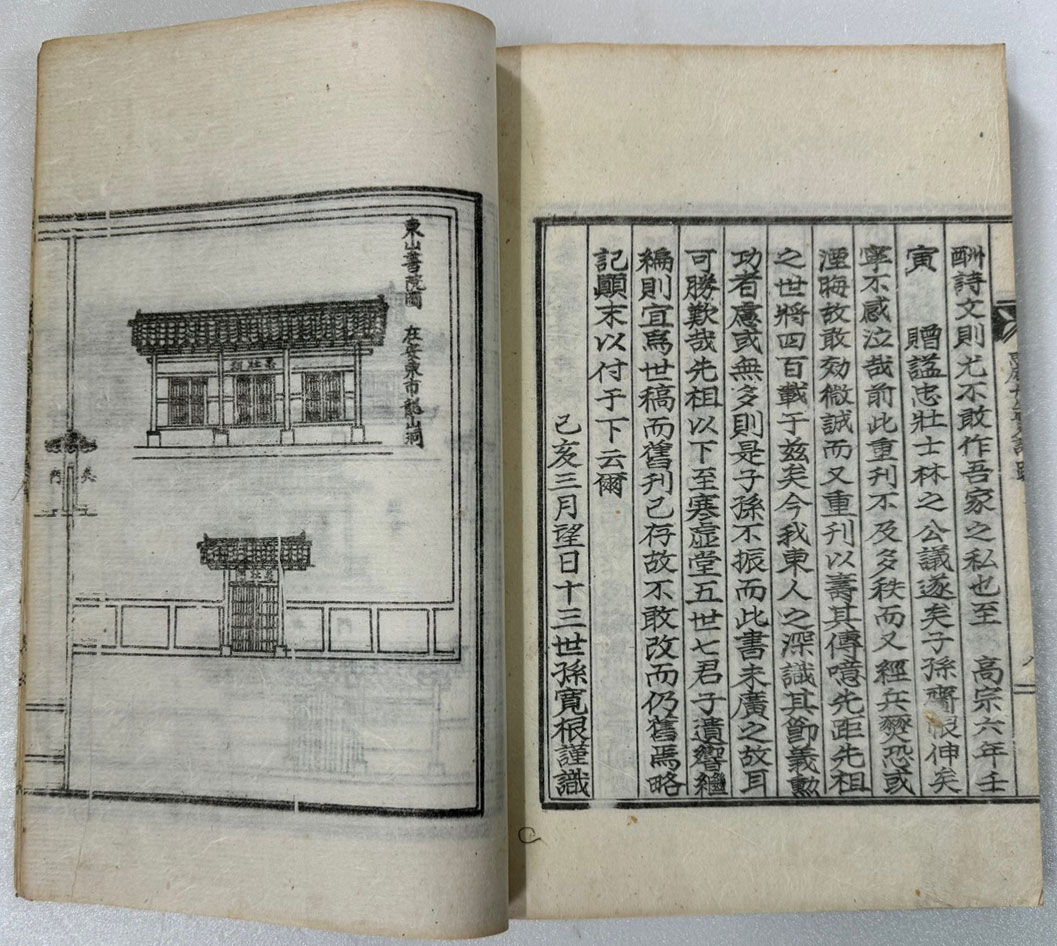 酬詩文則尤不敢作吾家之私也至 高宗六年壬
寅 贈諡忠壯士林之公議遂矣子孫齎恨伸矣
寧不感泣哉前此重刊不及多秩而又經兵燹恐或
湮晦故敢効微誠而又重刊以壽其傳噫先距先祖
之世將四百載于玆矣今我東人之深識其節義勳
功者慮或無多則是子孫不振而此書未廣之故耳
可勝歎哉先祖以下至寒虛堂五世七君子遺響繼
編則宜爲世稿而舊刊已存故不敢改而仍舊焉略
記顚末以付于下云爾
己亥三月望日十三世孫寬根謹識
東山書院圖 在安東市龍山洞